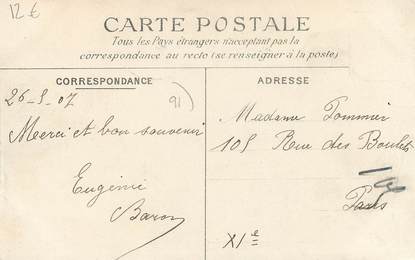 12 €
CARTE POSTALE
Tous les Pays étrangers n'acceptant pas la
correspondance au recto (se renseigner à la poste)
CORRESPONDANCE
26_5_07
91
Merci et bon souvenir
Eugénie
Baron
ADRESSE
Madame Pommier
105 Rue des Boulets
Paris
XIe